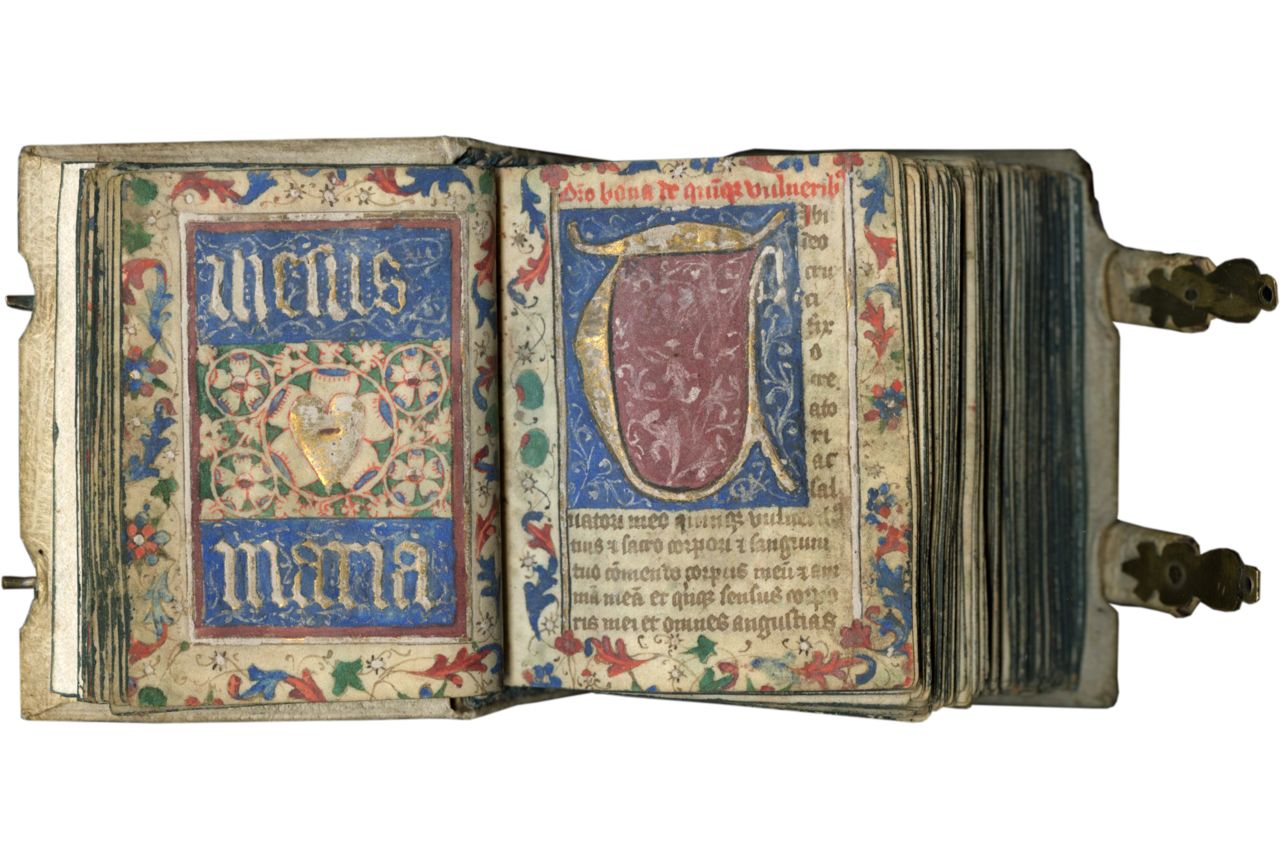 ihesus
maria
Oro bona de quīqꝫ vulneribꝰ
Tibi
cru
ci
fix
o
cre
ato
ri
ac
sal
uatori meo quinqꝫ vulneribꝰ
tuis ⁊ sacro corpori ⁊ sanguini
tuo cōmendo corpus meū ⁊ ani
mā meā et quīqꝫ sensus corpo
ris mei et omnes angustias